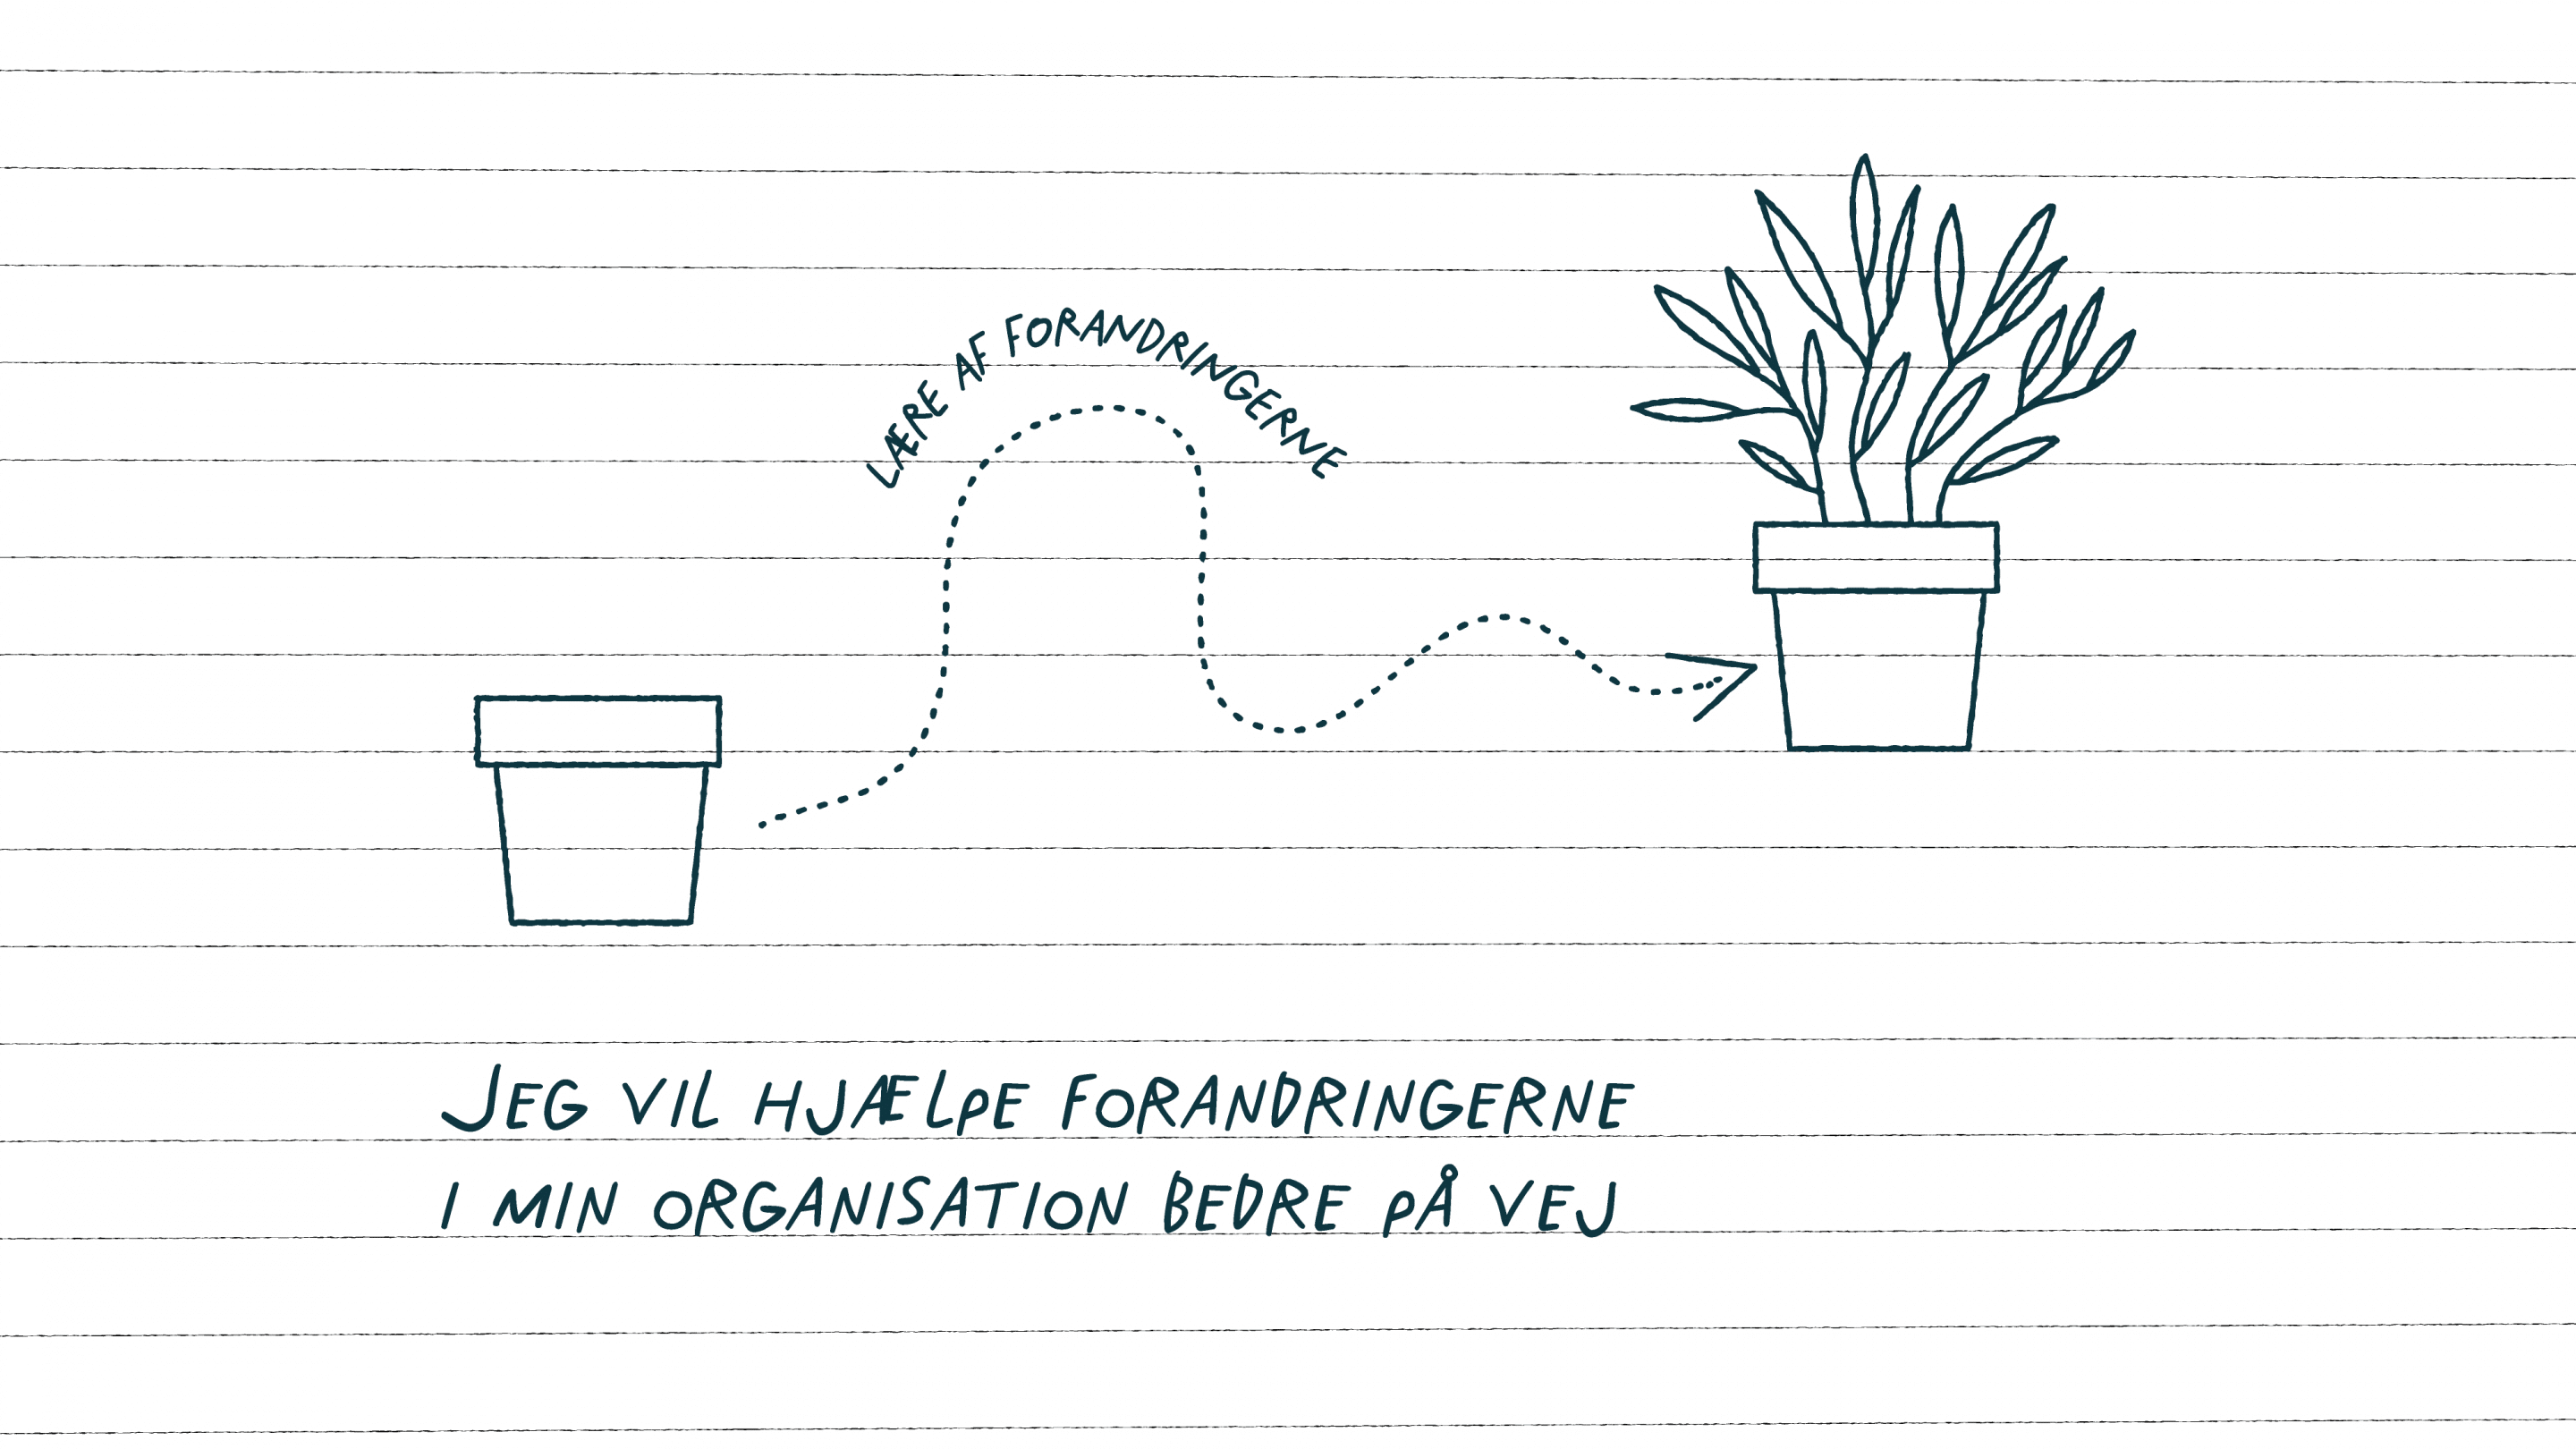 LÆRE AF FORANDRINGERNE
JEG VIL HJÆLPE FORANDRINGERNE
I MIN ORGANISATION BEDRE PÅ VEJ